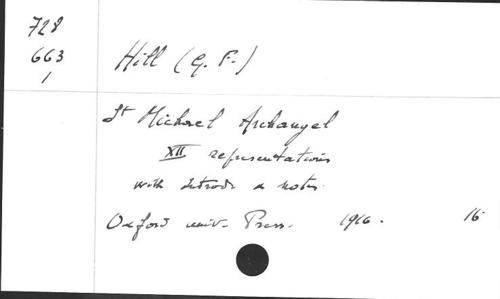 728
663
1
Hill (G. F.)
St Michael Archangel
XII representations
with introd. & notes.
Oxford univ. Press. 1916. 16